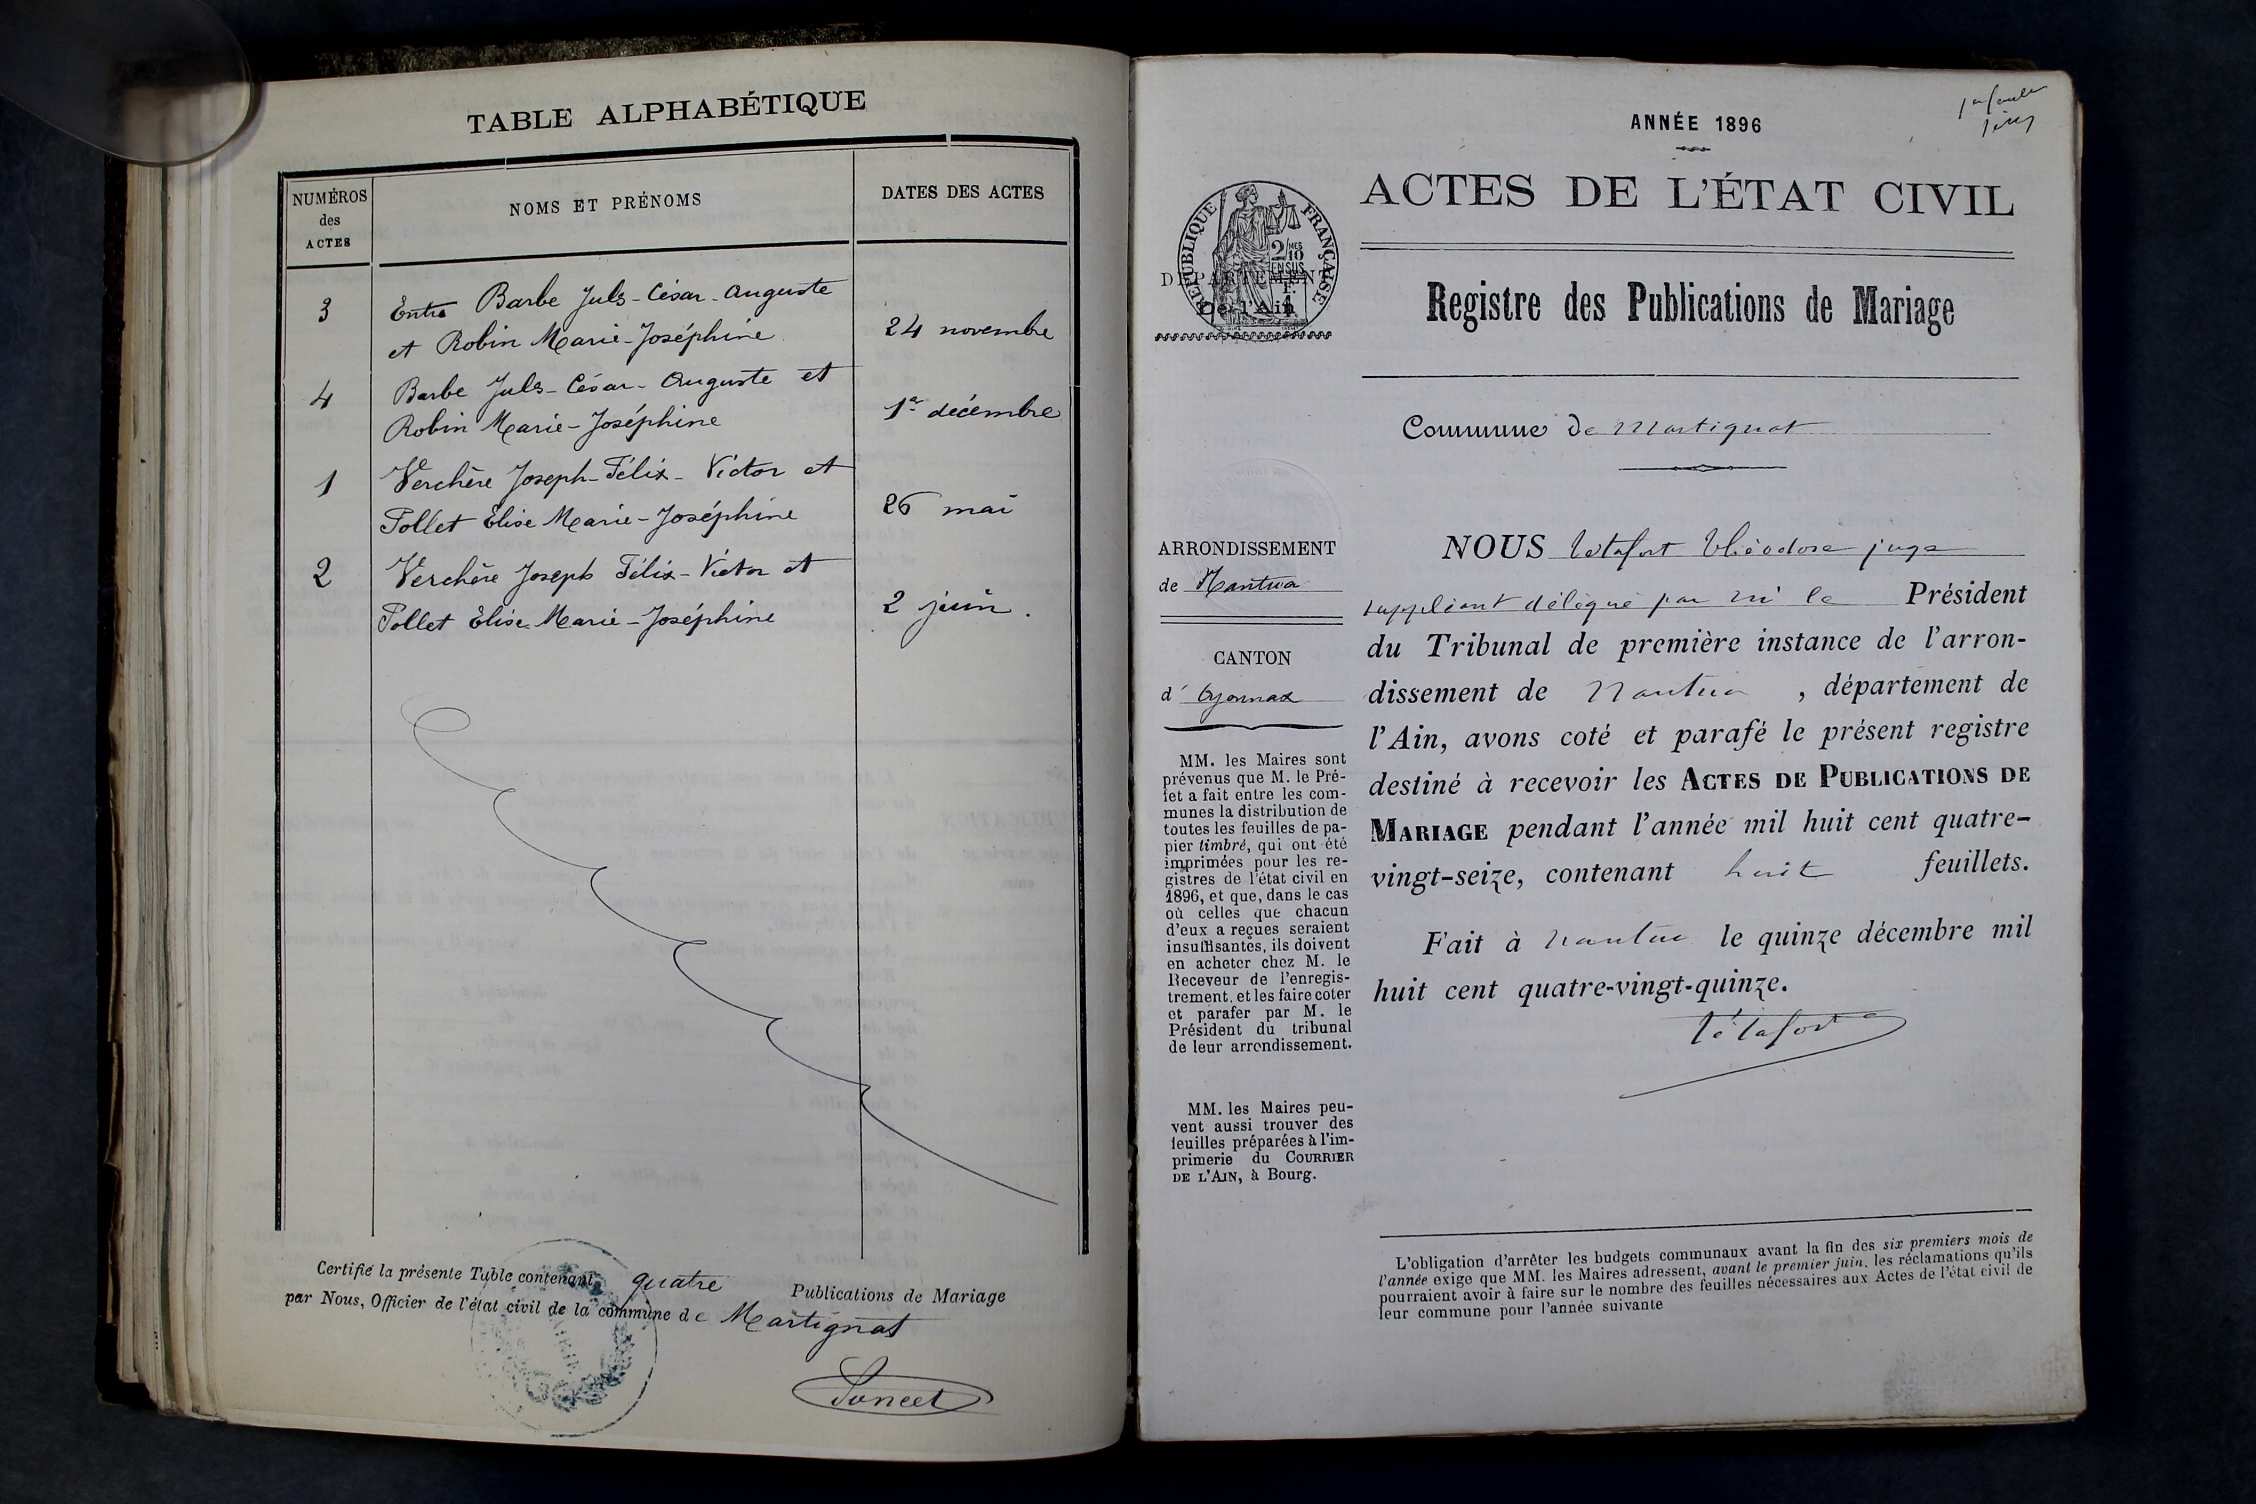 TABLE ALPHABÉTIQUE
NUMÉROS
des
ACTES
NOMS ET PRÉNOMS
DATES DES ACTES
3
Entre Barbe Jules-César-Auguste
et Robin Marie-Joséphine
24 novembre
4
Barbe Jules-César-Auguste et
Robin Marie-Joséphine
1er décembre
1
Verchère Joseph-Félix-Victor et
Tollet Elise Marie-Joséphine
26 mai
2
Verchère Joseph Félix-Victor et
Tollet Elise Marie-Joséphine
2 juin.
Certifié la présente Table contenant quatre Publications de Mariage
par Nous, Officier de l'état civil de la commune de Martignat
ANNÉE 1896
ACTES DE L'ÉTAT CIVIL
RÉPUBLIQUE FRANÇAISE
2/10
MES
EN SUS
DÉPARTEMENT
de l'Ain
Registre des Publications de Mariage
Commune de Martignat
ARRONDISSEMENT
de Nantua
CANTON
d' Oyonnax
MM. les Maires sont
prévenus que M. le Pré-
fet a fait entre les com-
munes la distribution de
toutes les feuilles de pa-
pier timbré, qui ont été
imprimées pour les re-
gistres de l'état civil en
1896, et que, dans le cas
où celles que chacun
d'eux a reçues seraient
insuffisantes, ils doivent
en acheter chez M. le
Receveur de l'enregis-
trement, et les faire coter
et parafer par M. le
Président du tribunal
de leur arrondissement.
MM. les Maires peu-
vent aussi trouver des
feuilles préparées à l'im-
primerie du COURRIER
DE L'AIN, à Bourg.
NOUS Tétafort Théodore juge
suppléant délégué par Mr le Président
du Tribunal de première instance de l'arron-
dissement de Nantua, département de
l'Ain, avons coté et parafé le présent registre
destiné à recevoir les ACTES DE PUBLICATIONS DE
MARIAGE pendant l'année mil huit cent quatre-
vingt-seize, contenant huit feuillets.
Fait à Nantua le quinze décembre mil
huit cent quatre-vingt-quinze.
Tétafort
L'obligation d'arrêter les budgets communaux avant la fin des six premiers mois de
l'année exige que MM. les Maires adressent, avant le premier juin, les réclamations qu'ils
pourraient avoir à faire sur le nombre des feuilles nécessaires aux Actes de l'état civil de
leur commune pour l'année suivante